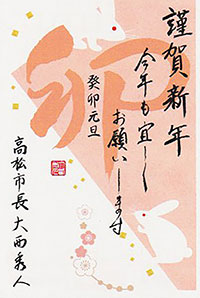 謹賀新年
今年も宜しく
お願いします
癸卯元旦
卯
高松市長 大西秀人